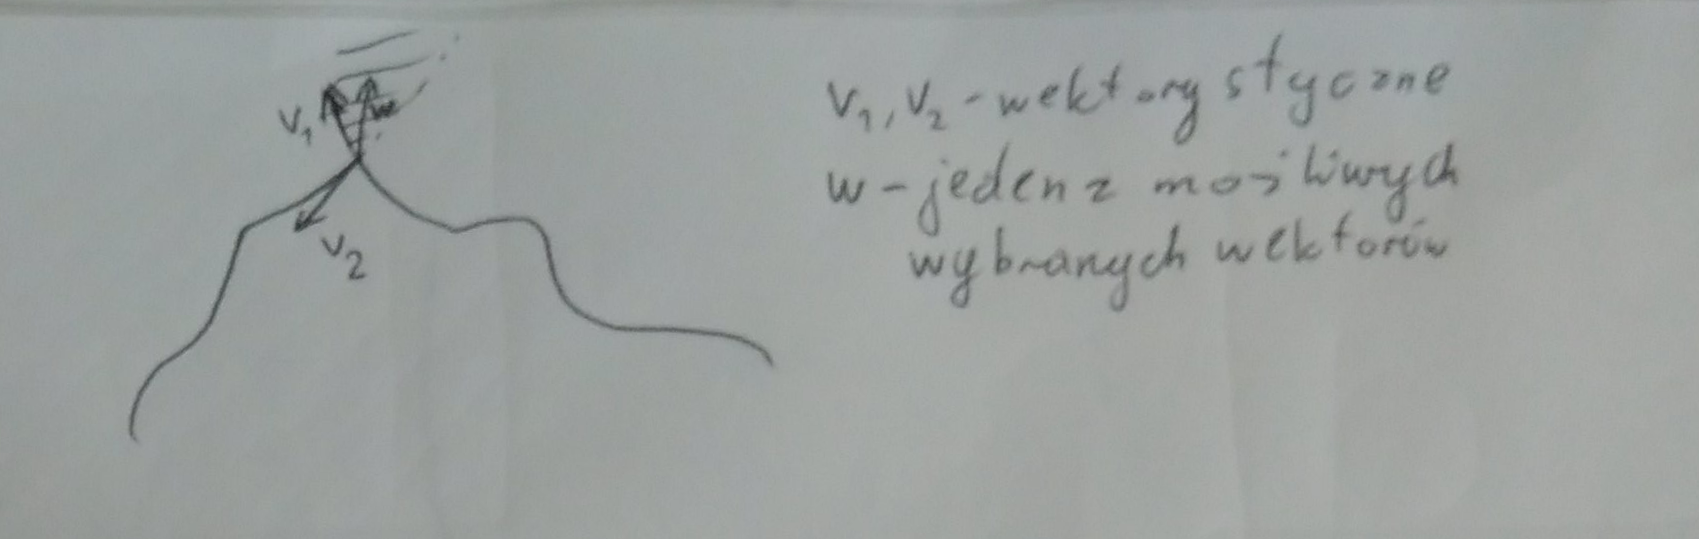 v₁
w
v₂
v₁, v₂ - wektory styczne
w - jeden z możliwych
wybranych wektorów